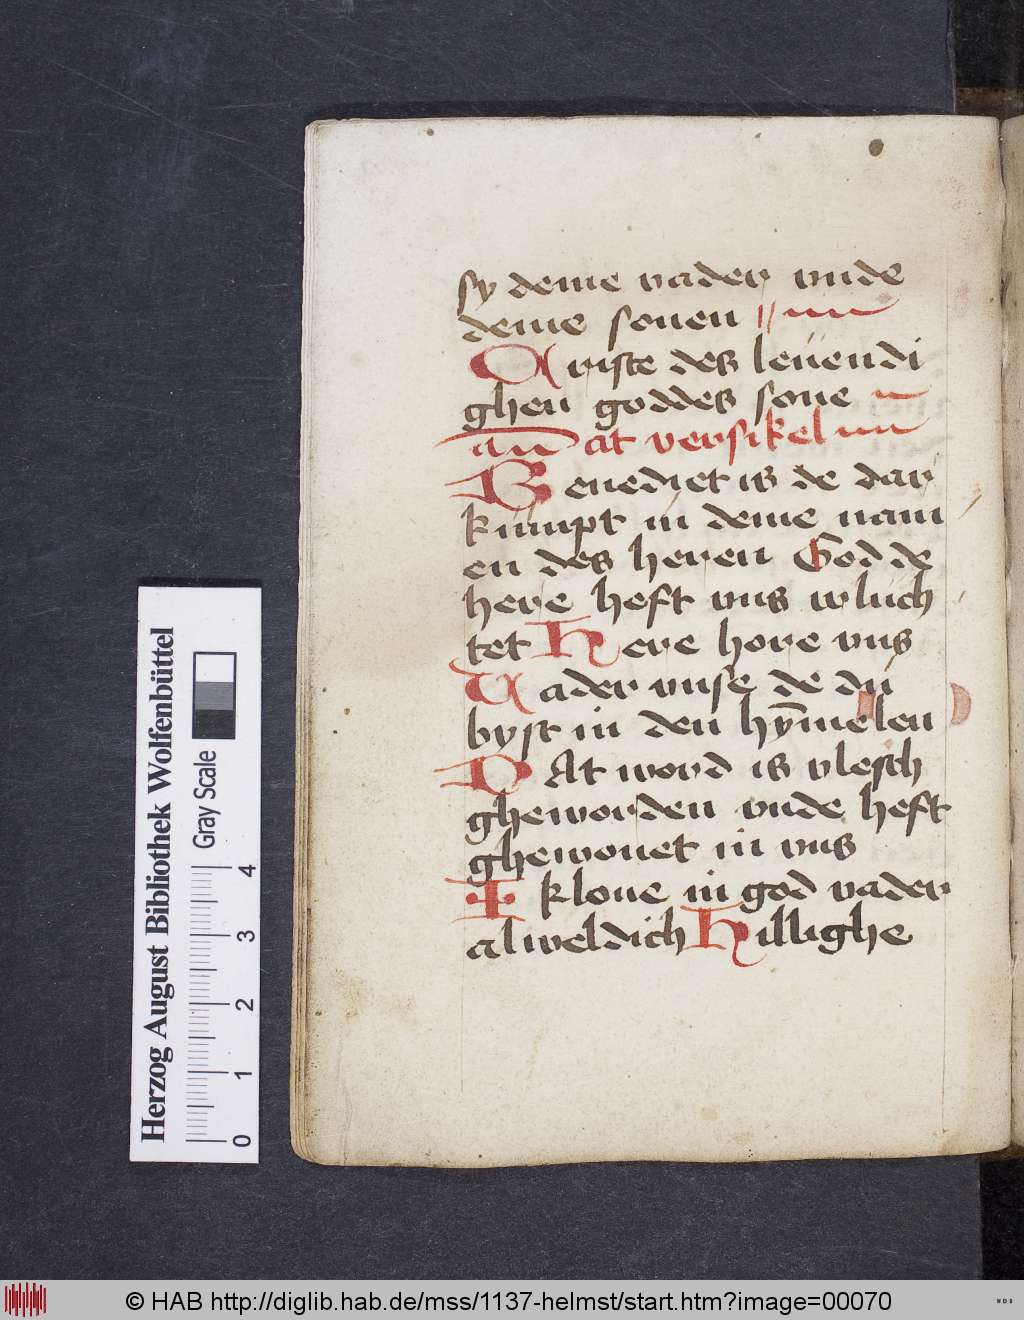 sy deme vader vnde
deme sonen
Criste des leuendi
ghen goddes sone
dat versikel
Benediet is de dar
kumpt in deme nam
en des heren God de
here heft vns vorluch
tet Here hore vns
Uader vnse de du
byst in den hȳmelen
DAt word is vlesch
gheworden vnde heft
ghewonet in vns
Ik loue in god vader
alweldich Hillighe
Herzog August Bibliothek Wolfenbüttel
Gray Scale
0 1 2 3 4
© HAB http://diglib.hab.de/mss/1137-helmst/start.htm?image=00070